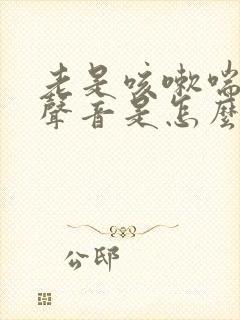 老是咳嗽喘
聲音是怎麼
公邸